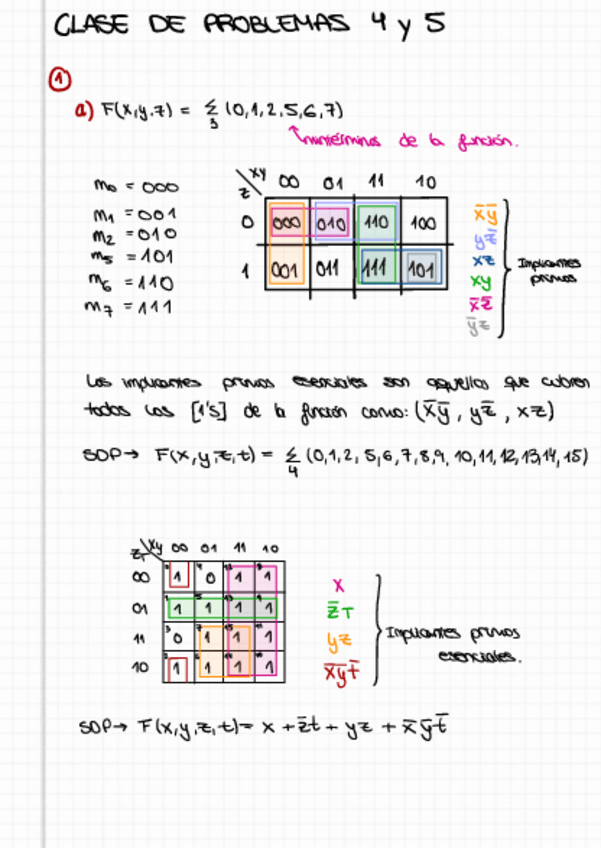 CLASE DE PROBLEMAS 4 y 5
1
a) F(x,y,z) = Σ3 (0,1,2,5,6,7)
mintérminos de la función.
m0 = 000
m1 = 001
m2 = 010
m5 = 101
m6 = 110
m7 = 111
z \ xy 00 01 11 10
0 000 010 110 100
1 001 011 111 101
x̄ȳ
yz̄
xz
xy
x̄z̄
ȳz
Implicantes
primos
Los implicantes primos esenciales son aquellos que cubren
todos los [1's] de la función como: (x̄ȳ, yz̄, xz)
SOP→ F(x,y,z,t) = Σ4 (0,1,2,5,6,7,8,9,10,11,12,13,14,15)
zT \ xy 00 01 11 10
00 1 0 1 1
01 1 1 1 1
11 0 1 1 1
10 1 1 1 1
x
z̄T
yz
x̄ȳt̄
Implicantes primos
esenciales.
SOP→ F(x,y,z,t)= x + z̄t + yz + x̄ȳt̄